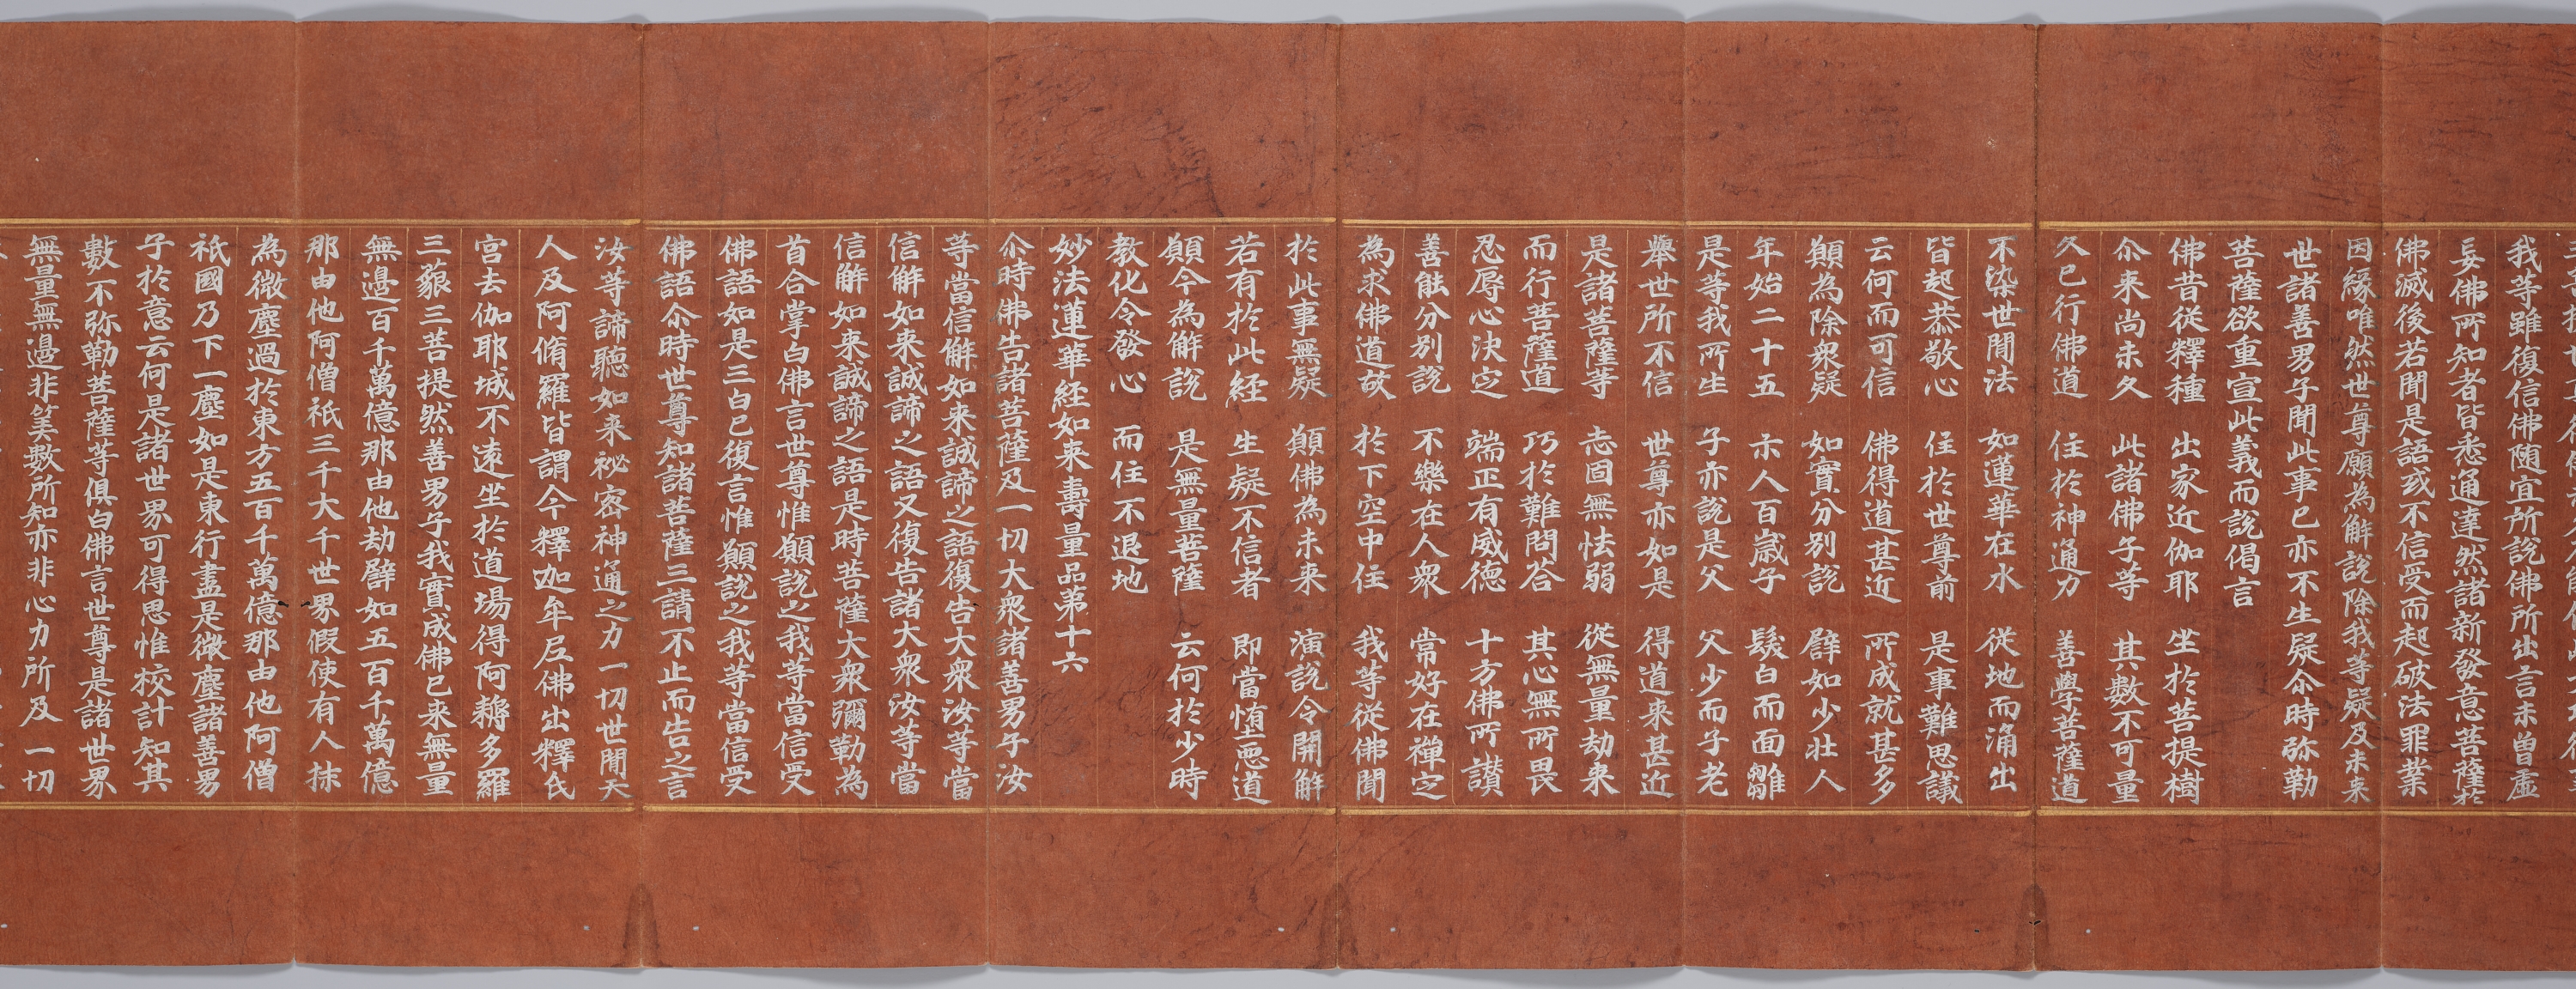 我等雖復信佛隨宜所說佛所出言未曾虛
妄佛所知者皆悉通達然諸新發意菩薩於
佛滅後若聞是語或不信受而起破法罪業
因緣唯然世尊願為解說除我等疑及未來
世諸善男子聞此事已亦不生疑尒時弥勒
菩薩欲重宣此義而說偈言
佛昔從釋種　出家近伽耶　坐於菩提樹
尒來尚未久　此諸佛子等　其數不可量
久已行佛道　住於神通力　善學菩薩道
不染世間法　如蓮華在水　從地而涌出
皆起恭敬心　住於世尊前　是事難思議
云何而可信　佛得道甚近　所成就甚多
願為除衆疑　如實分別說　譬如少壯人
年始二十五　示人百歲子　髮白而面皺
是等我所生　子亦說是父　父少而子老
舉世所不信　世尊亦如是　得道來甚近
是諸菩薩等　志固無怯弱　從無量劫來
而行菩薩道　巧於難問荅　其心無所畏
忍辱心決定　端正有威德　十方佛所讃
善能分別說　不樂在人衆　常好在禪定
為求佛道故　於下空中住　我等從佛聞
於此事無疑　願佛為未來　演說令開解
若有於此経　生疑不信者　即當堕惡道
願今為解說　是無量菩薩　云何於少時
教化令發心　而住不退地
妙法蓮華経如来壽量品第十六
尒時佛告諸菩薩及一切大衆諸善男子汝
等當信解如来誠諦之語復告大衆汝等當
信解如来誠諦之語又復告諸大衆汝等當
信解如来誠諦之語是時菩薩大衆彌勒為
首合掌白佛言世尊惟願說之我等當信受
佛語如是三白已復言惟願說之我等當信受
佛語尒時世尊知諸菩薩三請不止而告之言
汝等諦聽如来祕密神通之力一切世間天
人及阿脩羅皆謂今釋迦牟尼佛出釋氏
宮去伽耶城不遠坐於道場得阿耨多羅
三藐三菩提然善男子我實成佛已来無量
無邊百千萬億那由他劫譬如五百千萬億
那由他阿僧祇三千大千世界假使有人抹
為微塵過於東方五百千萬億那由他阿僧
祇國乃下一塵如是東行盡是微塵諸善男
子於意云何是諸世界可得思惟校計知其
數不弥勒菩薩等俱白佛言世尊是諸世界
無量無邊非筭數所知亦非心力所及一切